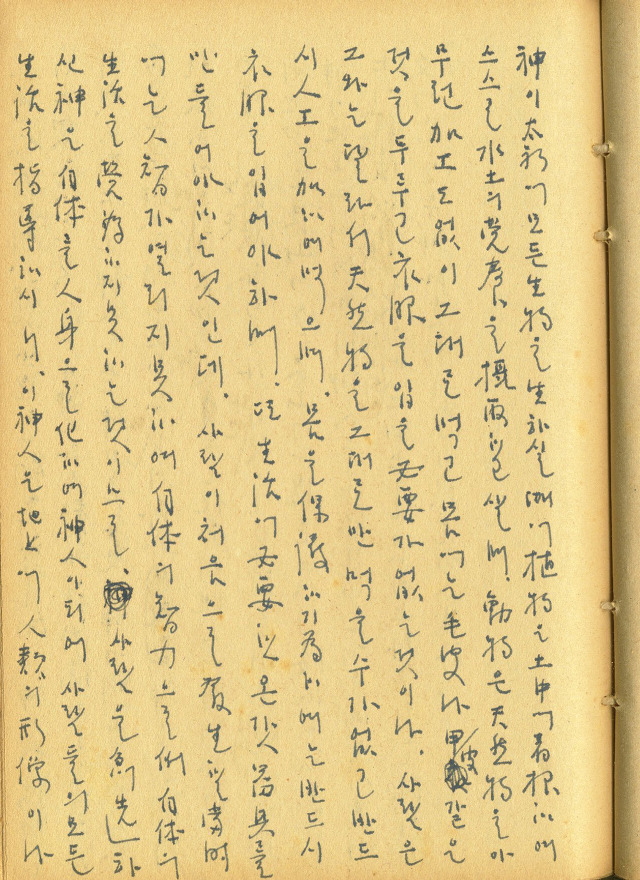 神이 太初에 모든 生物을 生하실 때에 植物은 土中에 着根하여
스스로 水土의 營養을 攝取하고 살며, 動物은 天然物을 아
무런 加工도 없이 그대로 먹고 몸에는 毛皮나 甲皮 같은
것을 두르고 衣服을 입을 必要가 없는 것이나, 사람은
그와는 달라서 天然物을 그대로만 먹을 수가 없고 반드
시 人工을 加하여 먹으며, 몸을 保護하기 爲하여는 반드시
衣服을 입어야 하며, 또 生活에 必要한 온갓 器具를
만들어야 하는 것인데, 사람이 처음으로 發生할 當時
에는 人智가 열리지 못하여 自体의 智力으로써 自体의
生活을 営爲하지 못하는 것이므로, 사람을 創造하
신 神은 自体를 人身으로 化하여 神人이 되어 사람들의 모든
生活을 指導하시니, 이 神人은 地上에 人類의 形像이나